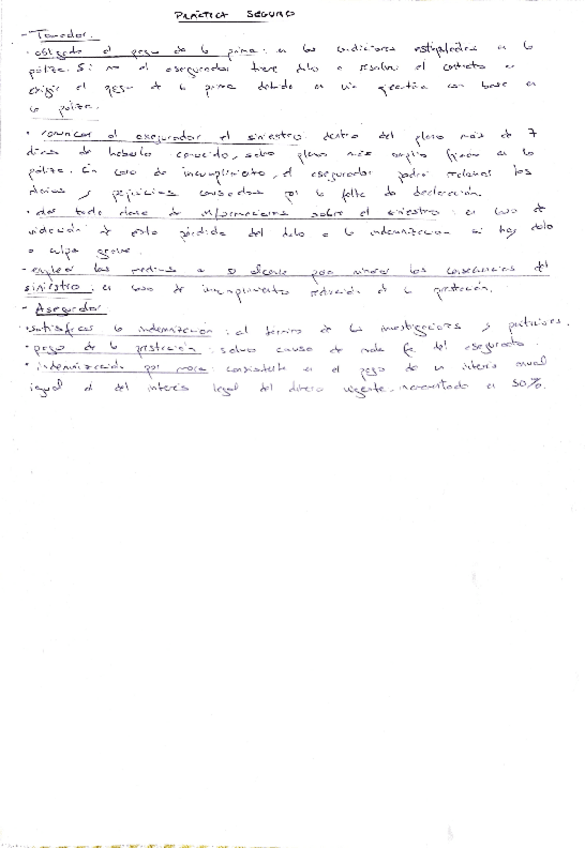 PRÁCTICA SEGURO
- Tomador.
· obligado al pago de la prima: en las condiciones estipuladas en la
póliza. Si no el asegurador tiene dcho a resolver el contrato o
exigir el pago de la prima debida en vía ejecutiva con base en
la póliza.
· comunicar al asegurador el siniestro dentro del plazo máx de 7
días de haberlo conocido, salvo plazo más amplio fijado en la
póliza. En caso de incumplimiento, el asegurador podrá reclamar los
daños y perjuicios causados por la falta de declaración.
· dar toda clase de informaciones sobre el siniestro: en caso de
violación de esto pérdida del dcho a la indemnización si hay dolo
o culpa grave.
- emplear los medios a su alcance para minorar las consecuencias del
siniestro: en caso de incumplimiento reducción de la prestación.
- Asegurador
· satisfacer la indemnización: al término de las investigaciones y peritaciones.
· pago de la prestación: salvo causa de mala fe del asegurado.
· indemnización por mora: consistente en el pago de un interés anual
igual al del interés legal del dinero vigente, incrementado en 50%.